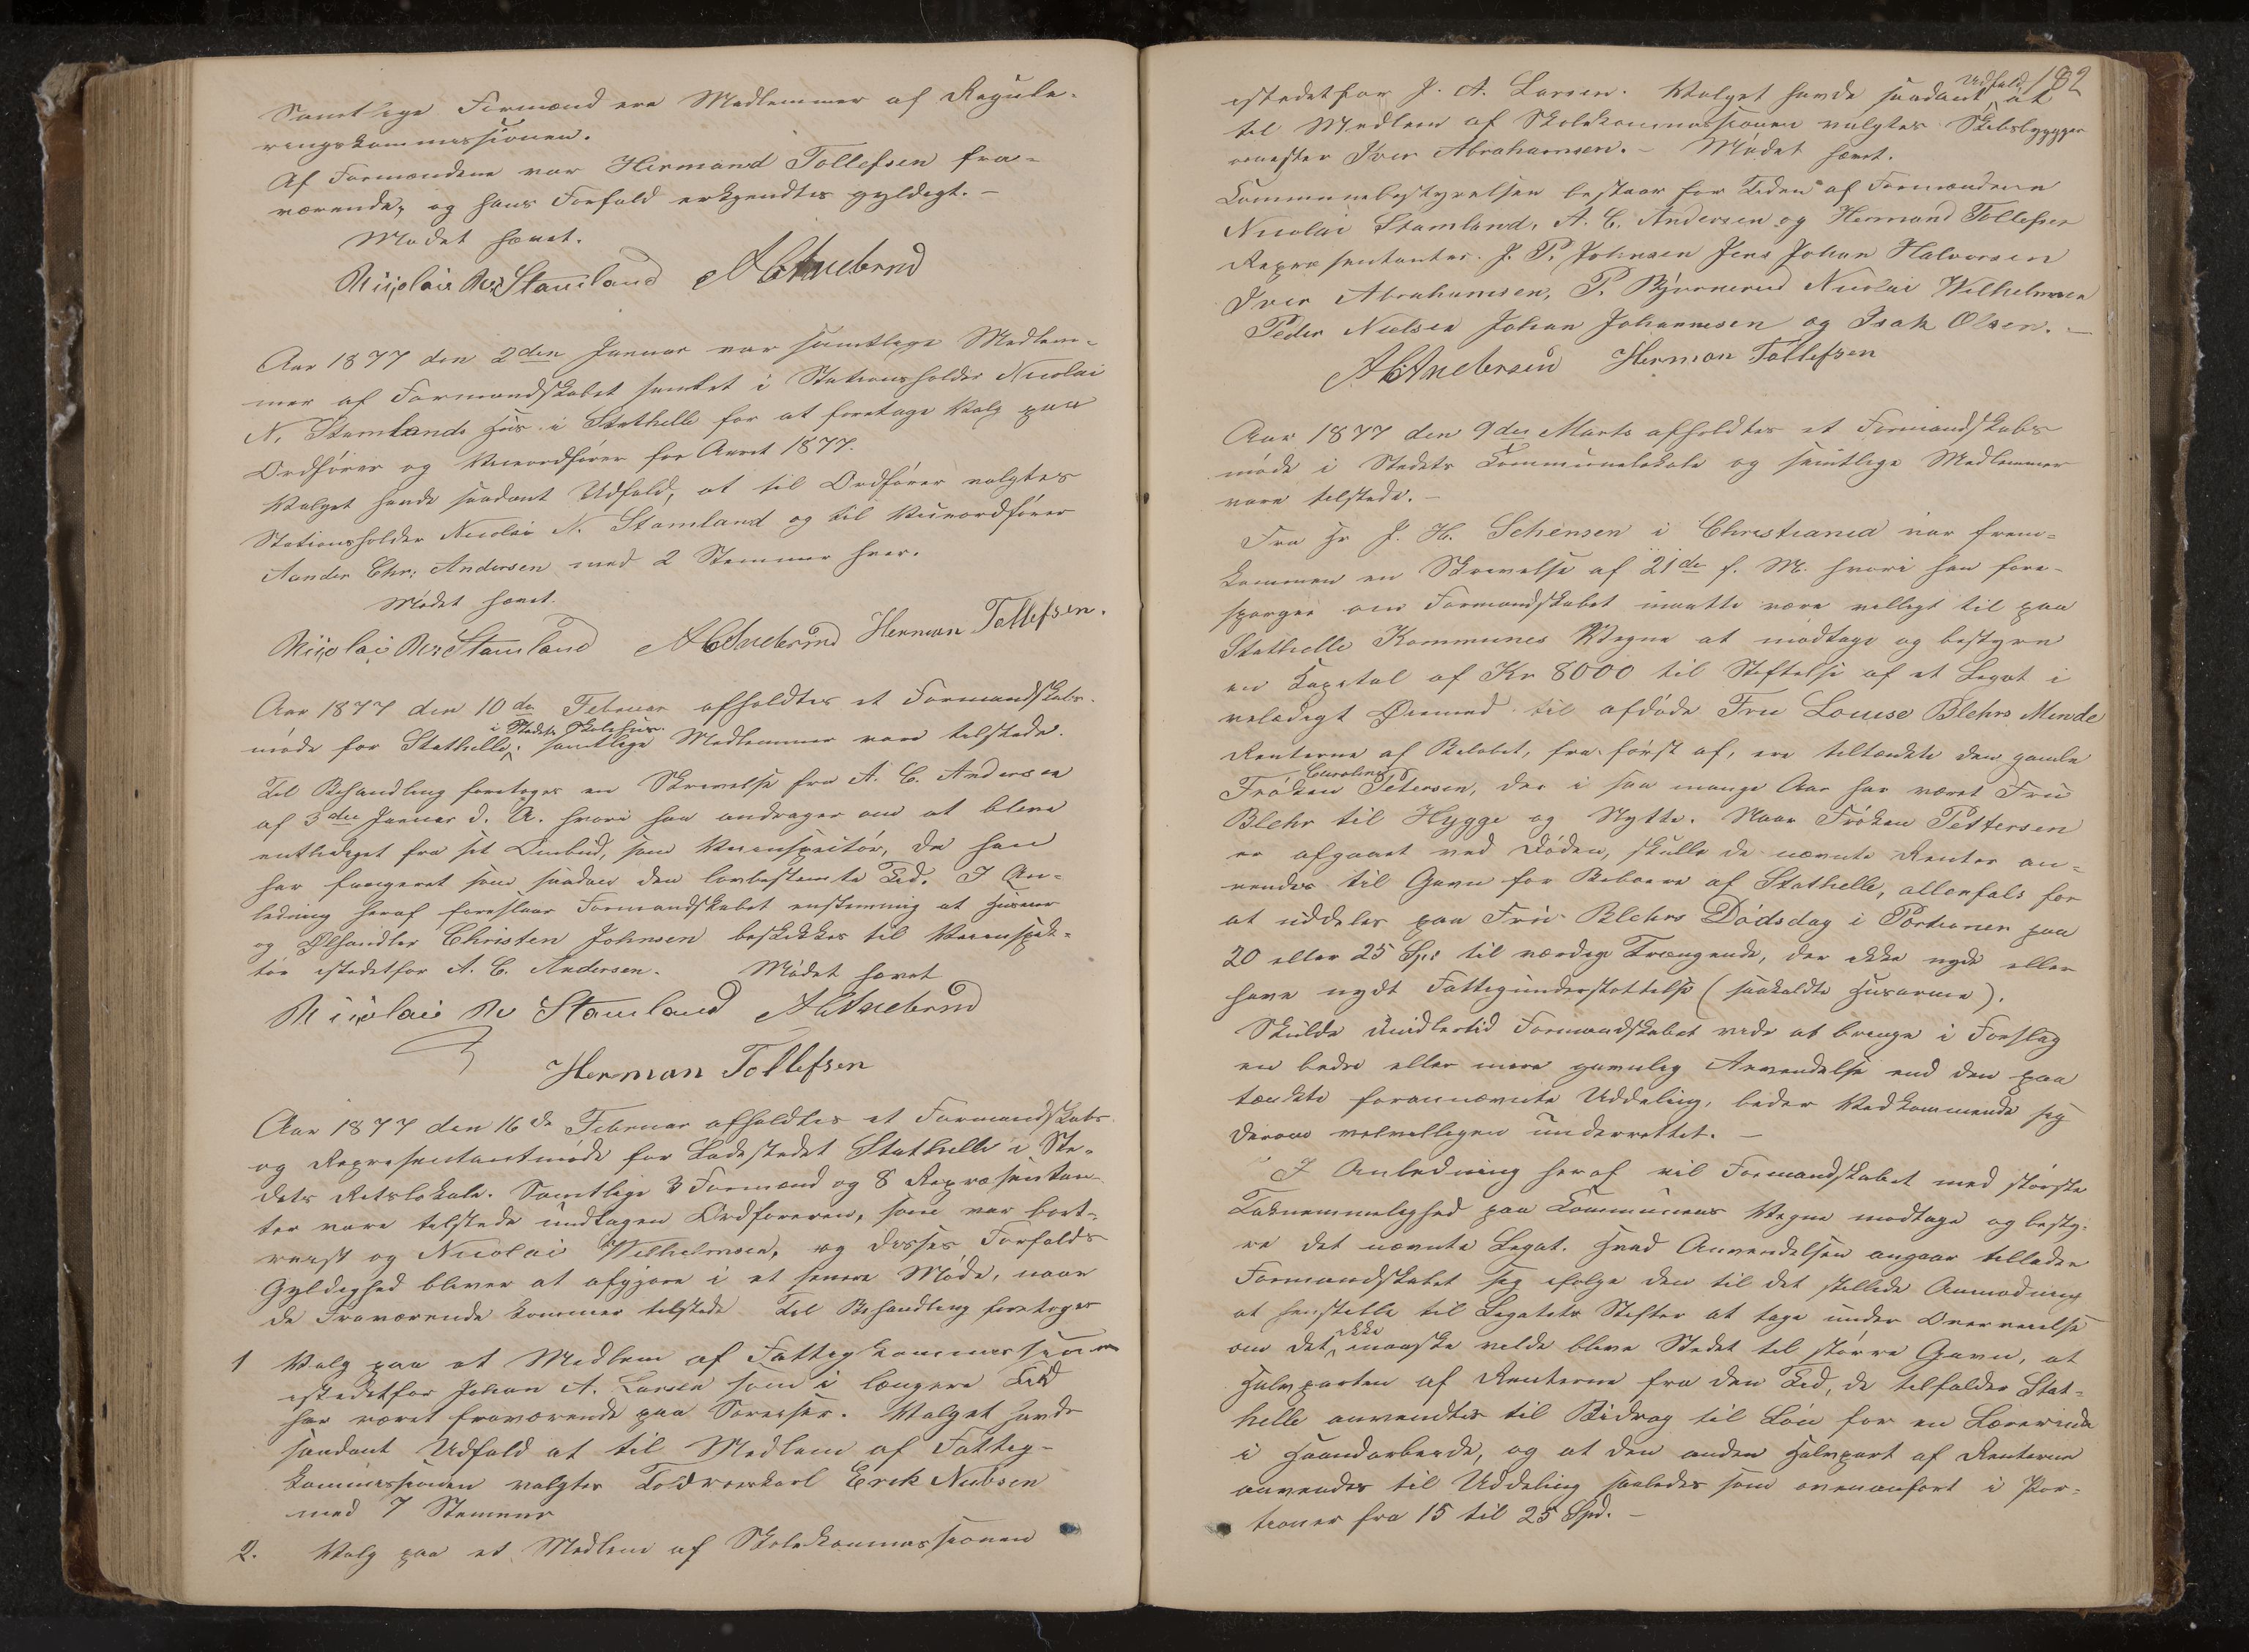 Samtlige Formænd ere Medlemmer af Regule-
ringskommissionen.
Af Formændene var Hermand Tollefsen fra-
værende, og hans Forfald erkjendtes gyldigt. –
Mødet hævet.
Nicolai N. Stamland A C Andersen
Aar 1877 den 2den Januar var samtlige Medlem-
mer af Formandskabet samlet i Stationsholder Nicolai
N. Stamlands Huus i Stathelle for at foretage Valg paa
Ordfører og Viceordfører for Aaret 1877.
Valget havde saadant Udfald, at til Ordfører valgtes
Stationsholder Nicolai N. Stamland og til Viceordfører
Aanden Chr: Andersen med 2 Stemmer hver.
Mødet hævet.
Nicolai N. Stamland A C Andersen Herman Tollefsen.
Aar 1877 den 10de Februar afholdtes et Formandskabs-
i Stedets Skolehus.
møde for Stathelle, samtlige Medlemmer vare tilstede.
Til Behandling foretoges en Skrivelse fra A. C. Andersen
af 3die Januar d. A. hvori han andrager om at blive
entlediget fra sit Ombud, som Veiinspektør, da han
har fungeret som saadan den lovbestemte Tid. I An-
ledning heraf foreslaar Formandskabet enstemmig at Huseier
og Ølhandler Christen Johnsen beskikkes til Veiinspek-
tør istedetfor A. C. Andersen. Mødet hævet
Nicolai N. Stamland A C Andersen
Herman Tollefsen
Aar 1877 den 16de Februar afholdtes et Formandskabs
og Repræsentantmøde for Ladestedet Stathelle i Ste-
dets Retslokale. Samtlige 3 Formænd og 8 Repræsentan-
ter vare tilstede undtagen Ordføreren, som var bort-
reist og Nicolai Wilhelmsen, og disses Forfalds
Gyldighed bliver at afgjøre i et senere Møde, naar
de Fraværende kommer tilstede Til Behandling foretoges
1 Valg paa et Medlem af Fattigkommissionen
istedetfor Johan A. Larsen som i længere Tid
har været fraværende paa Søreiser. Valget havde
saadant Udfald at til Medlem af Fattig-
kommissionen valgtes Erik Nielsen
med 7 Stemmer
2. Valg paa et Medlem af Skolekommissionen
182
Udfald
istedetfor J. A. Larsen. Valget havde saadant at
til Medlem af Skolekommissionen valgtes Skibsbygger
mester Iver Abrahamsen. – Mødet hævet.
Kommunebestyrelsen bestaar for Tiden af Formændene
Nicolai Stamland, A. C. Andersen og Hermand Tollefsen
Repræsentanter. J. P. Johnsen Jens Johan Halvorsen
Iver Abrahamsen, P. Bjørnerud Nicolai Wilhelmsen
Peder Nielsen Johan Johannesen og Isak Olsen. –
A C Andersen Herman Tollefsen
Aar 1877 den 9de Marts afholdtes et Formandskabs
møde i Stedets Kommunelokale og samtlige Medlemmer
vare tilstede. –
Fra Hr J. H. Schensen i Christiania var frem-
kommen en Skrivelse af 21de f. M. hvori han fore-
spørger om Formandskabet maatte være villigt til paa
Stathelle Kommunes Vegne at modtage og bestyre
en Kapital af Kr 8000 til Stiftelse af et Legat i
veldædigt Øiemed til afdøde Fru Louise Blehrs Minde
Renterne af Beløbet, fra først af, ere tiltænkte den gamle
Caroline
Frøken Petersen, der i saa mange Aar har været Fru
Blehr til Hygge og Nytte. Naar Frøken Pettersen
er afgaaet ved Døden, skulle de nævnte Renter an-
vendes til Gavn for Beboere af Stathelle, allenfals for
at uddeles paa Fru Blehrs Dødsdag i Portioner paa
20 eller 25 Spd til værdige Trængende, der ikke nyde eller
have nydt Fattigunderstøttelse (saakaldte Husarme).
Skulde imidlertid Formandskabet vide at bringe i Forslag
en bedre eller mere gavnlig Anvendelse end den paa
tænkte forannævnte Uddeling, beder Vedkommende sig
derom velvilligen underrettet. –
I Anledning heraf vil Formandskabet med største
Taknemmelighed paa Kommunens Vegne modtage og besty-
re det nævnte Legat. Hvad Anvendelsen angaar tillader
Formandskabet sig ifølge den til det stillede Anmodning
at henstille til Legatets Stifter at tage under Overveielse
ikke
om det maaske vilde blive Stedet til større Gavn, at
Halvparten af Renterne fra den Tid, de tilfalder Stat-
helle anvendtes til Bidrag til Løn for en Lærerinde
i Haandarbeide, og at den anden Halvpart af Renterne
anvendes til Uddeling saaledes som ovenanført i Por-
tioner fra 15 til 25 Spd. –